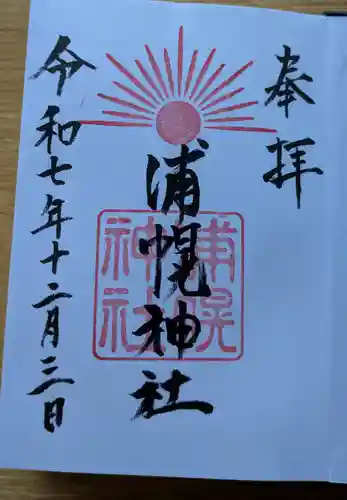 奉拝
浦幌神社
浦幌神社
令和七年十二月三日